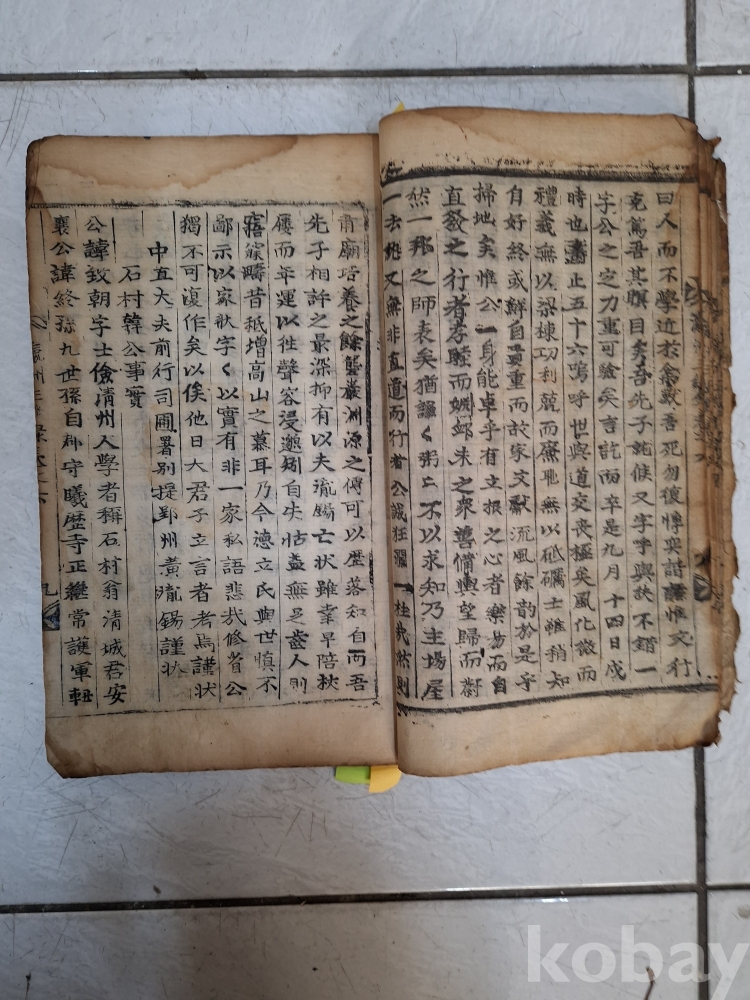 曰人而不學近於禽獸吾死勿復悼與諧惟文行
克篤吾其瞑目矣吾先子就候又字呼與訣不錯一
字公之定力重可驗矣言訖而卒是九月十四日戌
時也壽止五十六嗚呼世與道交喪極矣風化微而
禮義無以梁棟功利競而廉恥無以砥礪士雖稍知
自好終或鮮自重而故家文獻流風餘韵於是乎
掃地矣惟公一身能卓乎有立根之心者樂易而自
直發之行者孝睦而婣卹朱之衆譽備輿望歸而蔚
然一鄕之師表矣猶謙〻粥〻不以求知乃主場屋
一去就又無非直道而行者公誠狂瀾一柱哉然則
甫廟培養之餘龔巖淵源之傳可以歷落知自而吾
先子相許之最深抑有以夫瀧錫亡狀雖幸早陪杖
屨而年運以徃聲容浸邈矧自失怙益無足齒人則
寤寐疇昔秪增高山之慕耳乃今德立氏與世愼不
鄙示以家狀字〻以實有非一家私語悲哉修省公
獨不可復作矣以俟他日大君子立言者考焉謹狀
中直大夫前行司圃署別提鄞州黃瀧錫謹狀
石村韓公事實
公諱致朝字士儉淸州人學者稱石村翁淸城君安
襄公諱終孫九世孫自郡守曦歷寺正繼常護軍
九
kobay